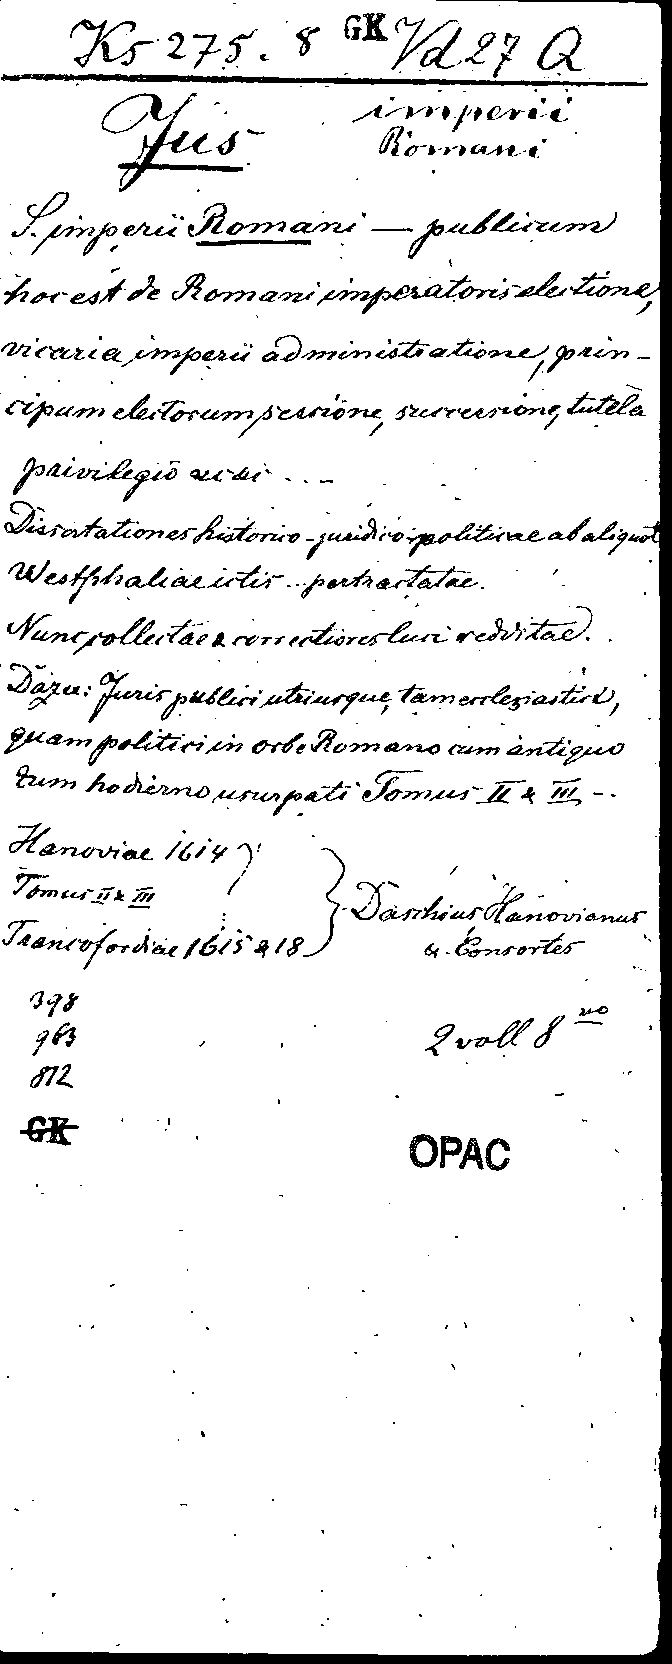 Ks 275. 8 GK Vd 27 Q
Jus imperii
Romani
S. imperii Romani — publicum
hoc est de Romani imperatoris electione,
vicaria imperii administratione, prin-
cipum electorum sessione, successione, tutela
privilegio ...
Dissertationes historico-juridico-politicae ab aliquot
Westphaliae ictis .. pertractatae.
Nunc collectae & correctiores luci redditae.
Dazu: Juris publici utriusque, tam ecclesiastici,
quam politici in orbe Romano cum antiquo
tum hodierno usurpati Tomus II & III -.
Hanoviae 1614
Tomus II & III
Francofordiae 1615 & 18
Daschius Hanovianus
& Consortes
398
963
812
2 voll 8 vo
GK
OPAC